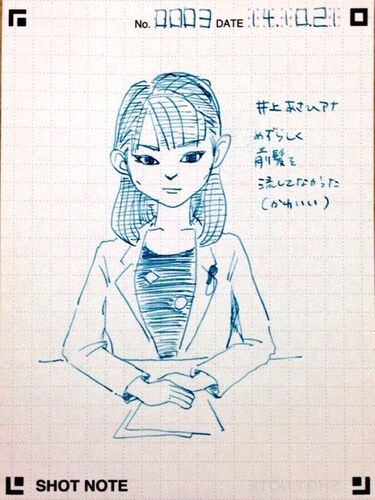 No. 0003 DATE 14.10.21
井上あさひアナ
めずらしく
前髪を
流してなかった
(かわいい)
SHOT NOTE